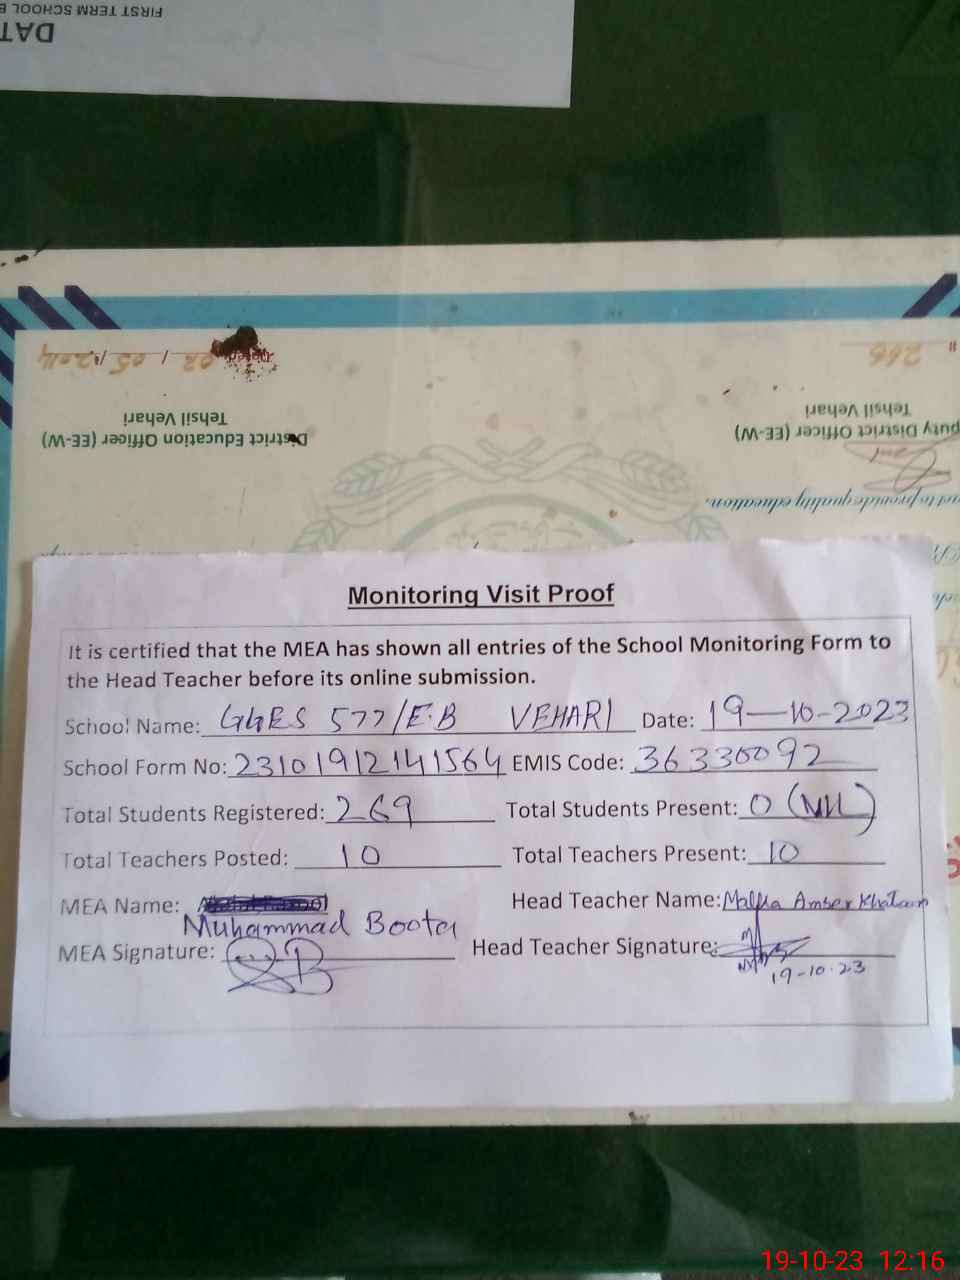 FIRST TERM SCHOOL
DAT
02 / 05 / 2014
266
District Education Officer (EE-W)
Tehsil Vehari
puty District Officer (EE-W)
Tehsil Vehari
to provide quality education.
Monitoring Visit Proof
It is certified that the MEA has shown all entries of the School Monitoring Form to
the Head Teacher before its online submission.
School Name: GGES 577/E.B VEHARI Date: 19-10-2023
School Form No: 23101912141564 EMIS Code: 36330092
Total Students Registered: 269 Total Students Present: 0 (Nil)
Total Teachers Posted: 10 Total Teachers Present: 10
MEA Name: Head Teacher Name: Amber
Muhammad Boota
MEA Signature: Head Teacher Signature:
19-10-23
19-10-23 12:16